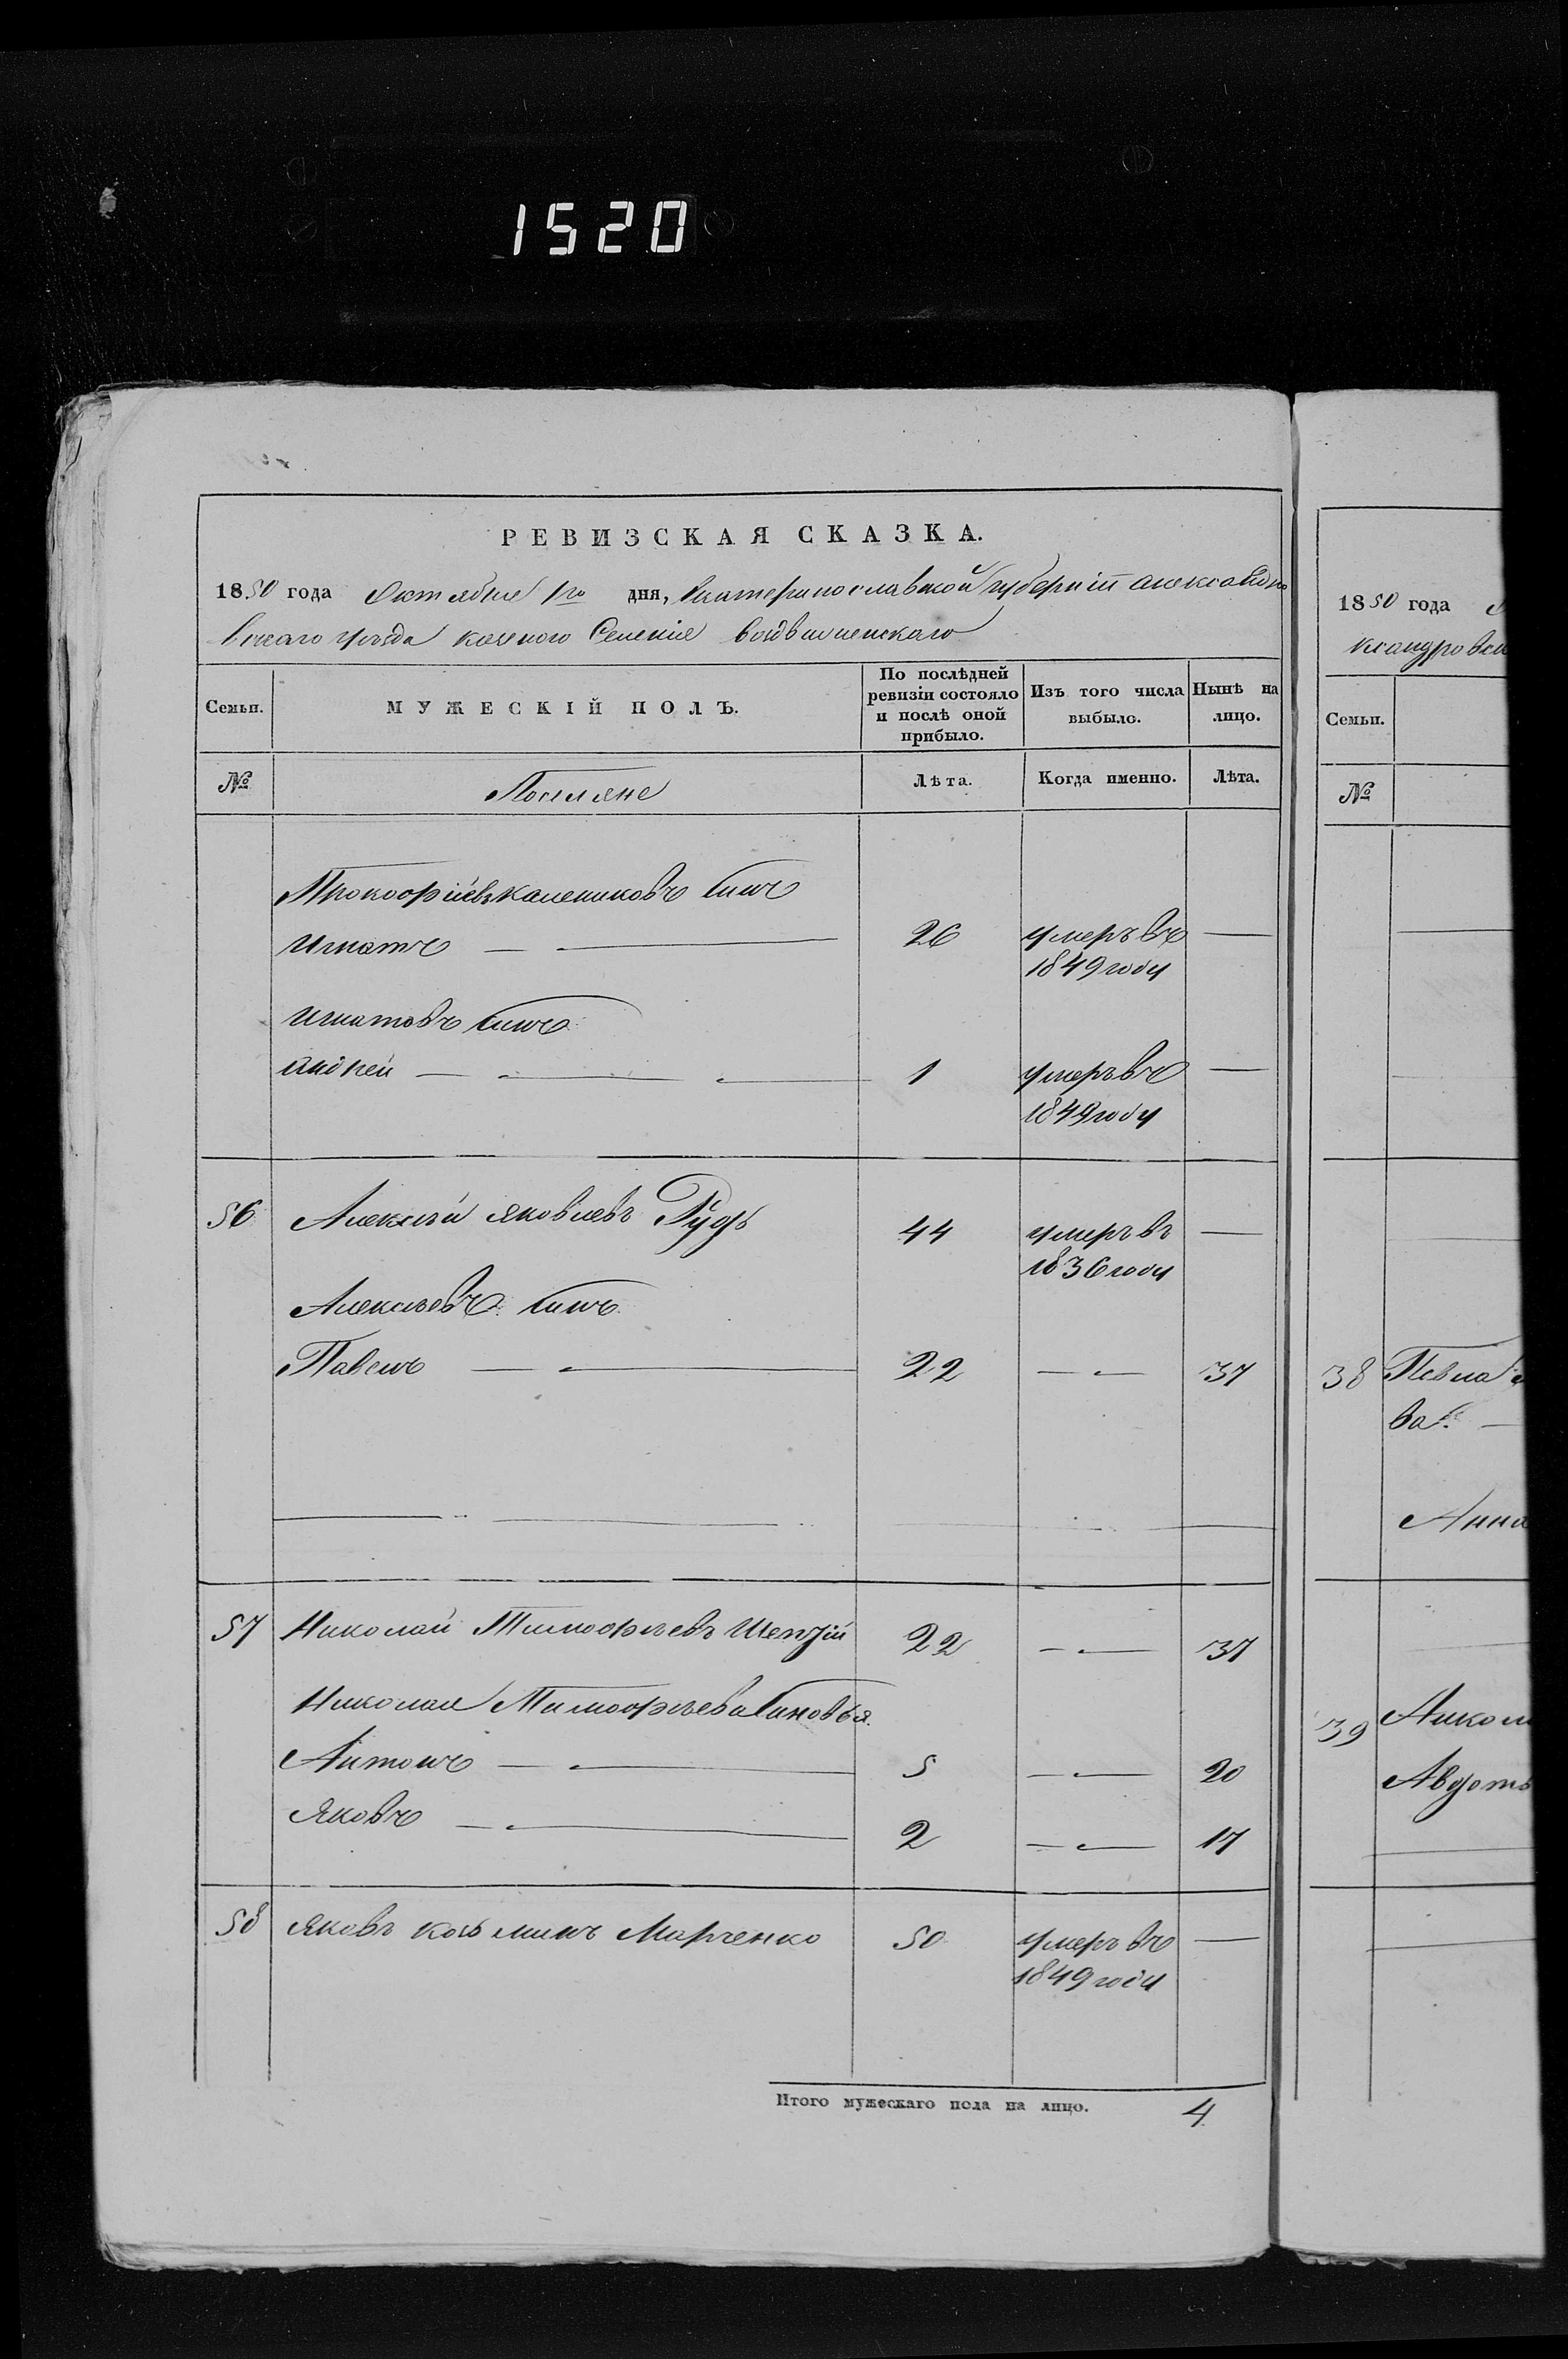 1520
РЕВИЗСКАЯ СКАЗКА.
1850 года Октября 1го дня, Екатеринославской губерніи Александро
вскаго уезда казеного Селенія воздвиженскаго
Семьи.
МУЖЕСКІЙ ПОЛЪ.
По послѣдней ревизіи состояло и послѣ оной прибыло.
Изъ того числа выбыло.
Нынѣ на лицо.
№
Поселяне
Лѣта.
Когда именно.
Лѣта.
Прокофіевъ калениковъ сынъ
Игнатъ — — 26 умеръ въ —
1849 году
Игнатовъ сынъ
андрей — — — 1 умеръ въ —
1849 году
56 Алексѣй яковлевъ Рудь 44 умеръ въ —
1836 году
Алексѣевъ сынъ
Павелъ — — 22 — — 37
57 Николай Тимофѣевъ 22 — — 37
Николая Тимофѣева сыновья
Антонъ — — 5 — — 20
Яковъ — — 2 — — 17
58 Яковъ козьминъ Марченко 50 умеръ въ —
1849 году
Итого мужескаго пола на лицо. 4
1850 года
ксандровск
Семьи.
№
38 Павла
ва
Анна
39 Никол
Авдоть